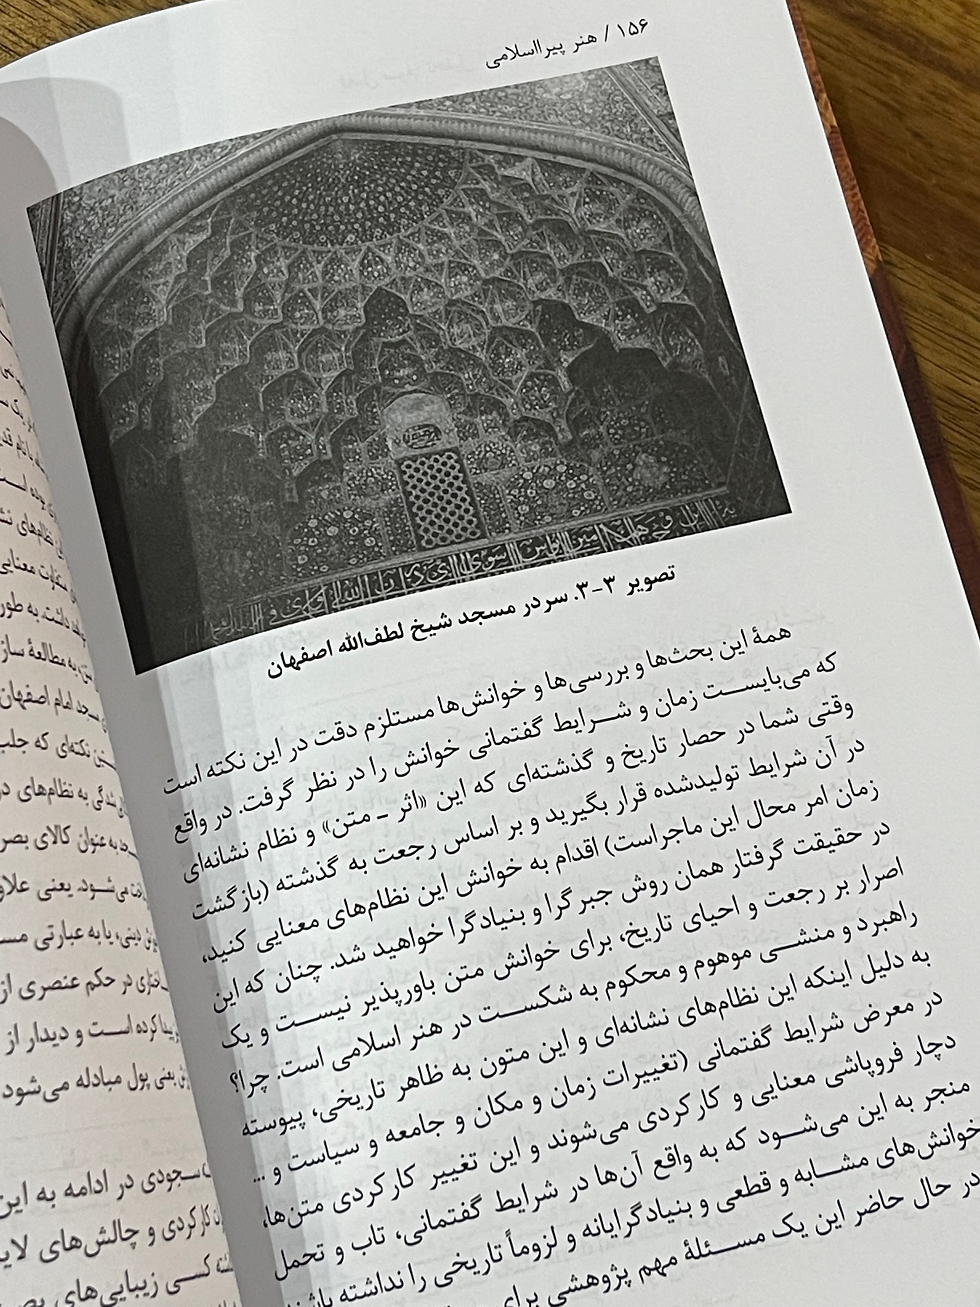 ۱۵۶ / هنر پیرااسلامی
تصویر ۳-۳. سردر مسجد شیخ لطف‌الله اصفهان
همهٔ این بحث‌ها و بررسی‌ها و خوانش‌ها مستلزم دقت در این نکته است
که می‌بایست زمان و شرایط گفتمانی خوانش را در نظر گرفت. در واقع
وقتی شما در حصار تاریخ و گذشته‌ای که این «اثر ـ متن» و نظام نشانه‌ای
در آن شرایط تولیدشده قرار بگیرید و بر اساس رجعت به گذشته (بازگشت
زمان امر محال این ماجراست) اقدام به خوانش این نظام‌های معنایی کنید،
در حقیقت گرفتار همان روش جبرگرا و بنیادگرا خواهید شد. چنان که این
اصرار بر رجعت و احیای تاریخ، برای خوانش متن باورپذیر نیست و یک
راهبرد و منشی موهوم و محکوم به شکست در هنر اسلامی است. چرا؟
به دلیل اینکه این نظام‌های نشانه‌ای و این متون به ظاهر تاریخی، پیوسته
در معرض شرایط گفتمانی (تغییرات زمان و مکان و جامعه و سیاست و ...
دچار فروپاشی معنایی و کارکردی می‌شوند و این تغییر کارکردی متن‌ها،
منجر به این می‌شود که به واقع آن‌ها در شرایط گفتمانی، تاب و تحمل
خوانش‌های مشابه و قطعی و بنیادگرایانه و لزوماً تاریخی را نداشته باشند
در حال حاضر این یک مسئلهٔ مهم پژوهشی برای
نظام‌های
متفاوت معنایی
داشت. به طور
به مطالعهٔ
مسجد امام اصفهان
نکته‌ای که جلب
به نظام‌های در
به عنوان کالای
می‌شود. یعنی
دینی، یا به عبارتی
در حکم عنصری از
پیدا کرده است و دیدار از
یعنی پول مبادله می‌شود
سجودی در ادامه به این
کارکردی و چالش‌های
کسی زیبایی‌های